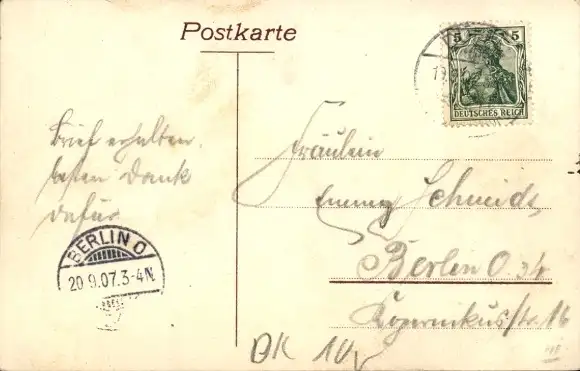 Postkarte
5 5
DEUTSCHES REICH
Brief erhalten.
besten Dank
dafür
BERLIN O
20.9.07.3-4N.
Fräulein
Emmy Schmidt,
Berlin O 34
Kopernikus/str. 16
DK 10